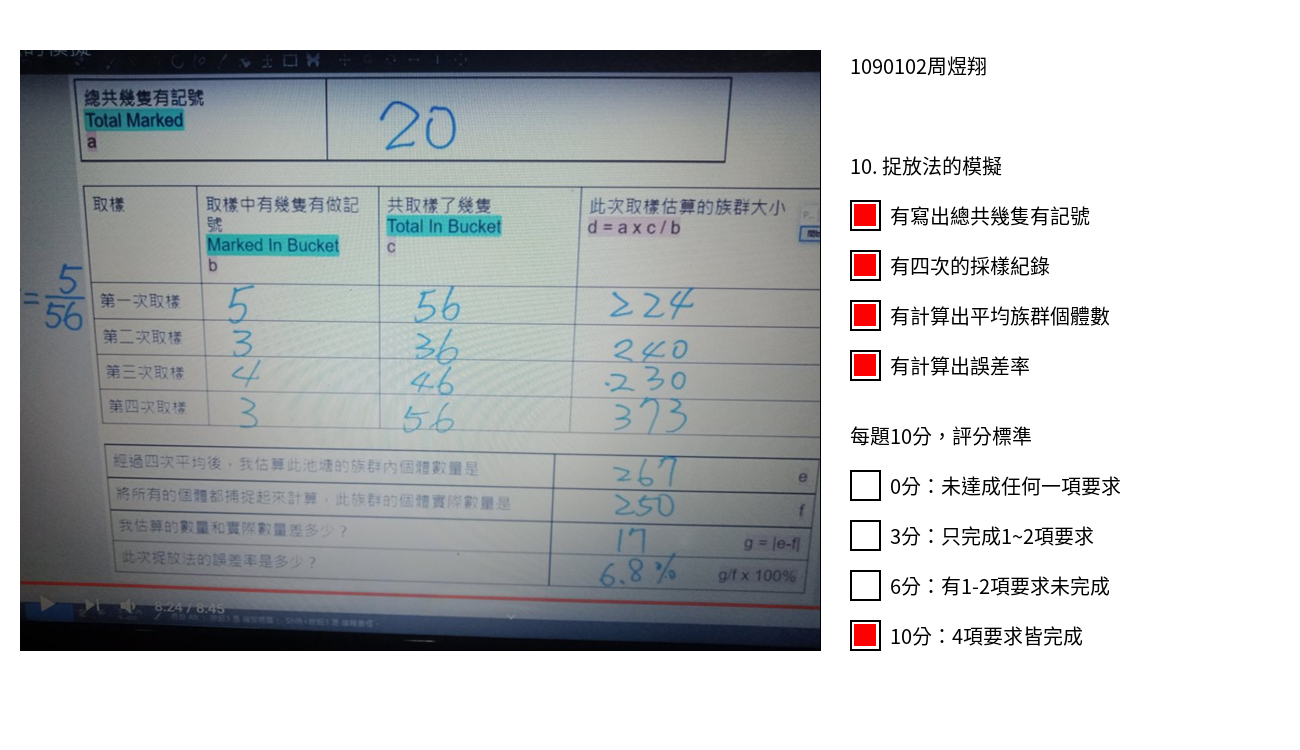 總共幾隻有記號
Total Marked
a
20
取樣
取樣中有幾隻有做記號
Marked In Bucket
b
共取樣了幾隻
Total In Bucket
c
此次取樣估算的族群大小
d = a x c / b
= 5/56
第一次取樣 5 56 224
第二次取樣 3 36 240
第三次取樣 4 46 230
第四次取樣 3 56 373
經過四次平均後，我估算此池塘的族群內個體數量是 267 e
將所有的個體都捕捉起來計算，此族群的個體實際數量是 250 f
我估算的數量和實際數量差多少？ 17 g = |e-f|
此次捉放法的誤差率是多少？ 6.8% g/f x 100%
8:24 / 8:45
1090102周煜翔
10. 捉放法的模擬
有寫出總共幾隻有記號
有四次的採樣紀錄
有計算出平均族群個體數
有計算出誤差率
每題10分，評分標準
0分：未達成任何一項要求
3分：只完成1~2項要求
6分：有1-2項要求未完成
10分：4項要求皆完成